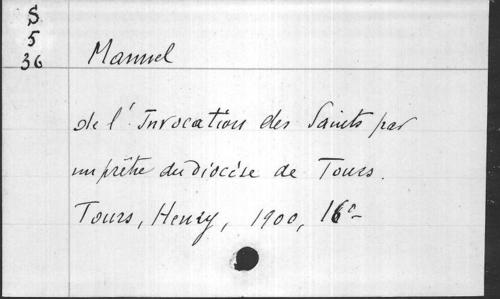 S
5
36
Manuel
de l'Invocation des Saints par
un prêtre du diocèse de Tours.
Tours, Henry, 1900, 16º